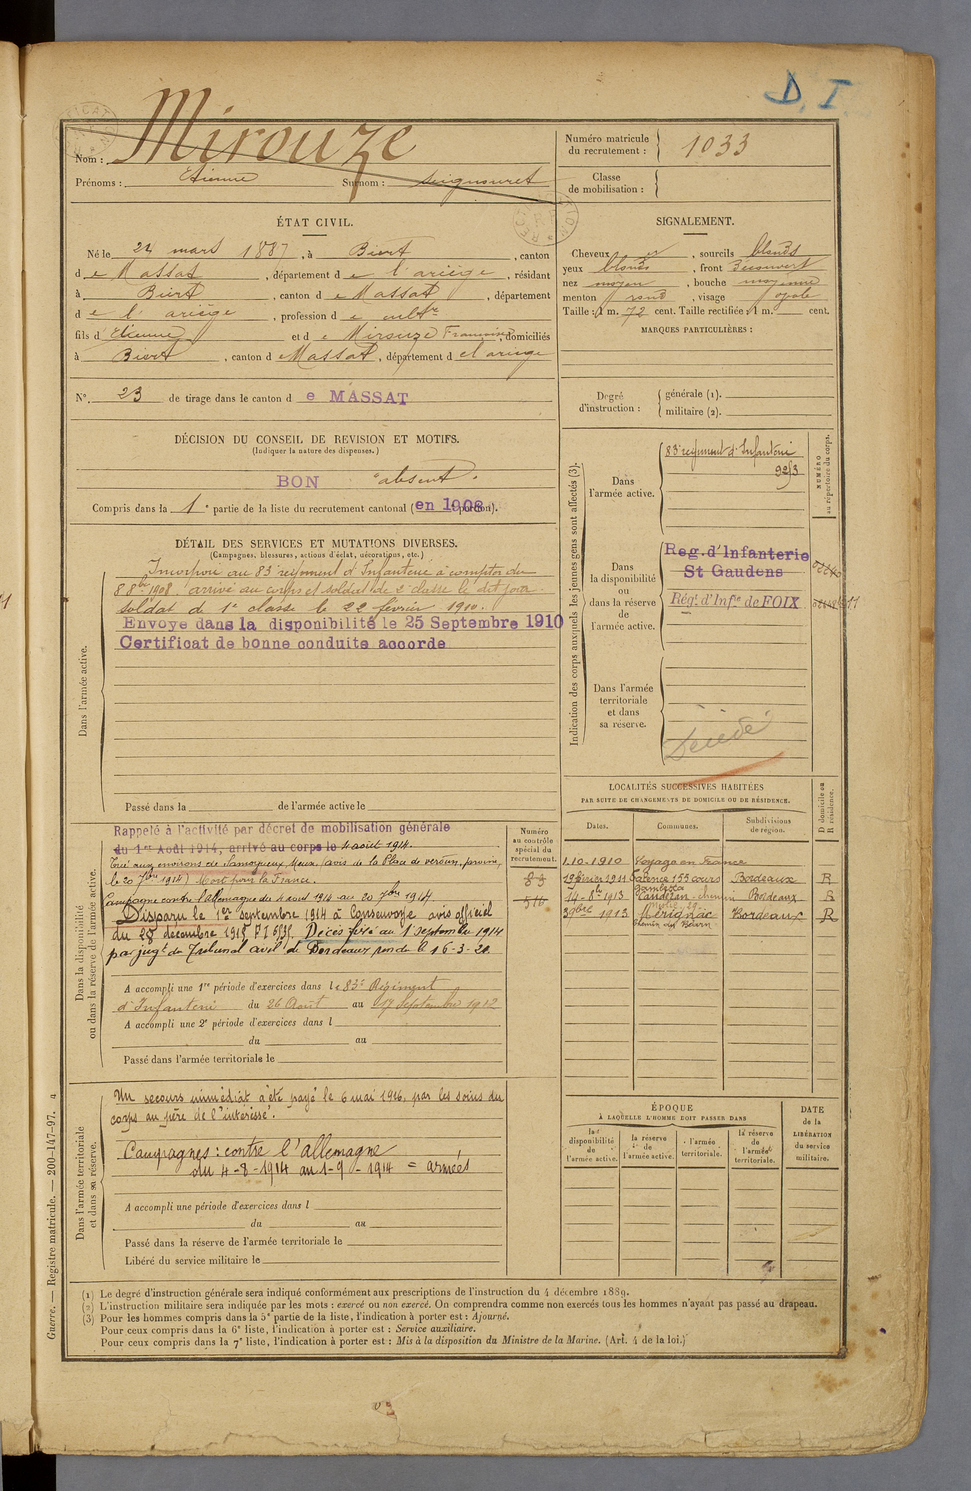 D. I.
Nom : Mirouze
Prénoms : Etienne Surnom : Seignouret
Numéro matricule
du recrutement : 1033
Classe
de mobilisation :
ÉTAT CIVIL.
Né le 24 mars 1887, à Biert, canton
de Massat, département de l'ariège, résidant
à Biert, canton de Massat, département
de l'ariège, profession de cultr
fils d'Etienne et de Mirouze Françoise, domiciliés
à Biert, canton de Massat, département de l'ariege
N°. 23 de tirage dans le canton de MASSAT
SIGNALEMENT.
Cheveux , sourcils blonds
yeux blonds, front Découvert
nez moyen, bouche moyenne
menton rond, visage ovale
Taille : 1 m. 72 cent. Taille rectifiée : 1 m. cent.
MARQUES PARTICULIÈRES :
Degré
d'instruction :
générale (1).
militaire (2).
DÉCISION DU CONSEIL DE REVISION ET MOTIFS.
(Indiquer la nature des dispenses.)
BON "absent".
Compris dans la 1e partie de la liste du recrutement cantonal (en 1908 portion).
DÉTAIL DES SERVICES ET MUTATIONS DIVERSES.
(Campagnes, blessures, actions d'éclat, décorations, etc.)
Dans l'armée active.
Incorporé au 83e régiment d'Infanterie à compter du
8 8bre 1908, arrivé au corps et soldat de 2e classe le dit jour.
Soldat de 1e classe le 22 février 1910.
Envoyé dans la disponibilité le 25 Septembre 1910
Certificat de bonne conduite accordé
Passé dans la de l'armée active le
Indication des corps auxquels les jeunes gens sont affectés (3).
NUMÉRO
au répertoire du corps.
Dans
l'armée active.
83e régiment d'Infanterie
Dans
la disponibilité
ou
dans la réserve
de
l'armée active.
Reg. d'Infanterie
St Gaudens
Régt d'Infie de FOIX
Dans l'armée
territoriale
et dans
sa réserve.
Décédé
Dans la disponibilité
ou dans la réserve de l'armée active.
Rappelé à l'activité par décret de mobilisation générale
du 1er Août 1914, arrivé au corps le 4 août 1914.
Tué aux environs de Samogneux Meuse (avis de la Place de verdun, parvenu
le 20 7bre 1914) Mort pour la France.
Campagne contre l'allemagne du 4 août 1914 au 20 7bre 1914
Disparu le 1er septembre 1914 à Consenvoye avis officiel
du 28 décembre 1918 Décès fixé au 1 Septembre 1914
par jugt du Tribunal civil de Bordeaux rendu le 16-3-20.
A accompli une 1re période d'exercices dans le 83e Régiment
d'Infanterie du 26 Août au 17 Septembre 1912
A accompli une 2e période d'exercices dans l
du au
Passé dans l'armée territoriale le
Numéro
au contrôle
spécial du
recrutement.
83
516
LOCALITÉS SUCCESSIVES HABITÉES
PAR SUITE DE CHANGEMENTS DE DOMICILE OU DE RÉSIDENCE.
Dates. Communes. Subdivisions
de région. D domicile ou
R résidence.
1.10.1910 Voyage en France
19 février 1911 Talence 155 cours Gambetta Bordeaux R
14-8h 1913 Caudéran chemin Bordeaux R
3 9bre 1913 Mérignac Bordeaux R
chemin du Béarn
Dans l'armée territoriale
et dans sa réserve.
Un secours immédiat a été payé le 6 mai 1916, par les soins du
corps au père de l'intéressé.
Campagnes : contre l'allemagne
du 4-8-1914 au 1-9-1914 = armées
A accompli une période d'exercices dans l
du au
Passé dans la réserve de l'armée territoriale le
Libéré du service militaire le
ÉPOQUE
À LAQUELLE L'HOMME DOIT PASSER DANS
la disponibilité
de
l'armée active.
la réserve
de
l'armée active.
l'armée
territoriale.
la réserve
de
l'armée
territoriale.
DATE
de la
LIBÉRATION
du service
militaire.
(1) Le degré d'instruction générale sera indiqué conformément aux prescriptions de l'instruction du 4 décembre 1889.
(2) L'instruction militaire sera indiquée par les mots : exercé ou non exercé. On comprendra comme non exercés tous les hommes n'ayant pas passé au drapeau.
(3) Pour les hommes compris dans la 5e partie de la liste, l'indication à porter est : Ajourné.
Pour ceux compris dans la 6e liste, l'indication à porter est : Service auxiliaire.
Pour ceux compris dans la 7e liste, l'indication à porter est : Mis à la disposition du Ministre de la Marine. (Art. 4 de la loi.)
Guerre. — Registre matricule. — 200-147-97.